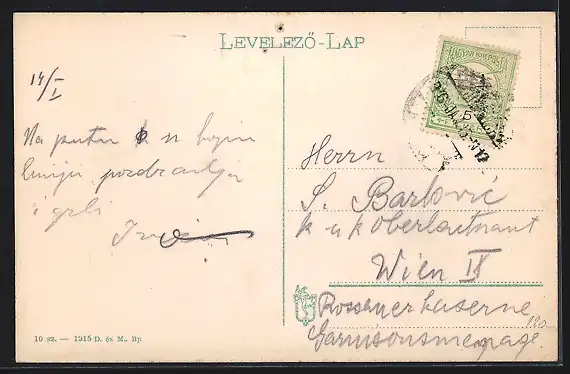 LEVELEZŐ-LAP
14/I
Na putu k
liniju pozdravlja
i grli
MAGYAR KIR. POSTA
Herrn
S. Barlović
k u k Oberleutnant
Wien IX
Rossauerkaserne
Garnisonsmenage
10 sz. — 1915 D. és M., Bp